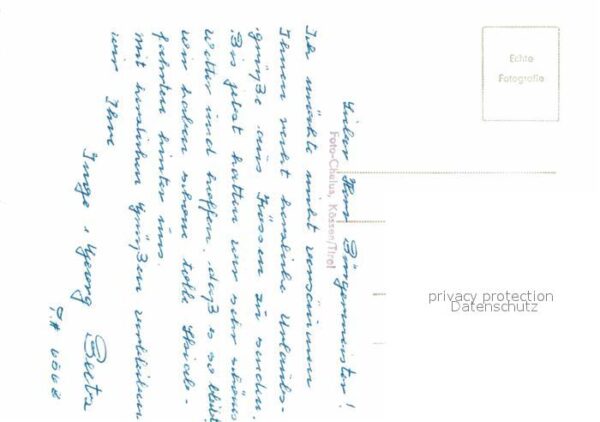 Lieber Herr Bürgermeister!
Ich möchte nicht versäumen
Ihnen recht herzliche Urlaubs-
grüße aus Kössen zu senden.
Bis jetzt hatten wir sehr schönes
Wetter und hoffen, daß es so bleibt.
Wir haben schöne tolle
fahrten hinter uns.
Mit herzlichen Grüßen verbleiben
wir Ihre
Inge, Georg
Foto-Chalus, Kössen/Tirol
Echte
Fotografie
privacy protection
Datenschutz